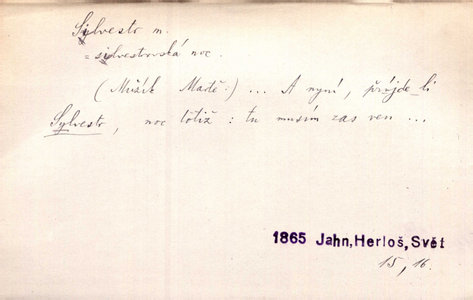 Silvestr m.
= silvestrovská noc.
(Mužík Martě:) ... A nyní, přijde-li
Sylvestr, noc totiž: tu musím zas ven ...
1865 Jahn, Herloš, Svět
15, 16.